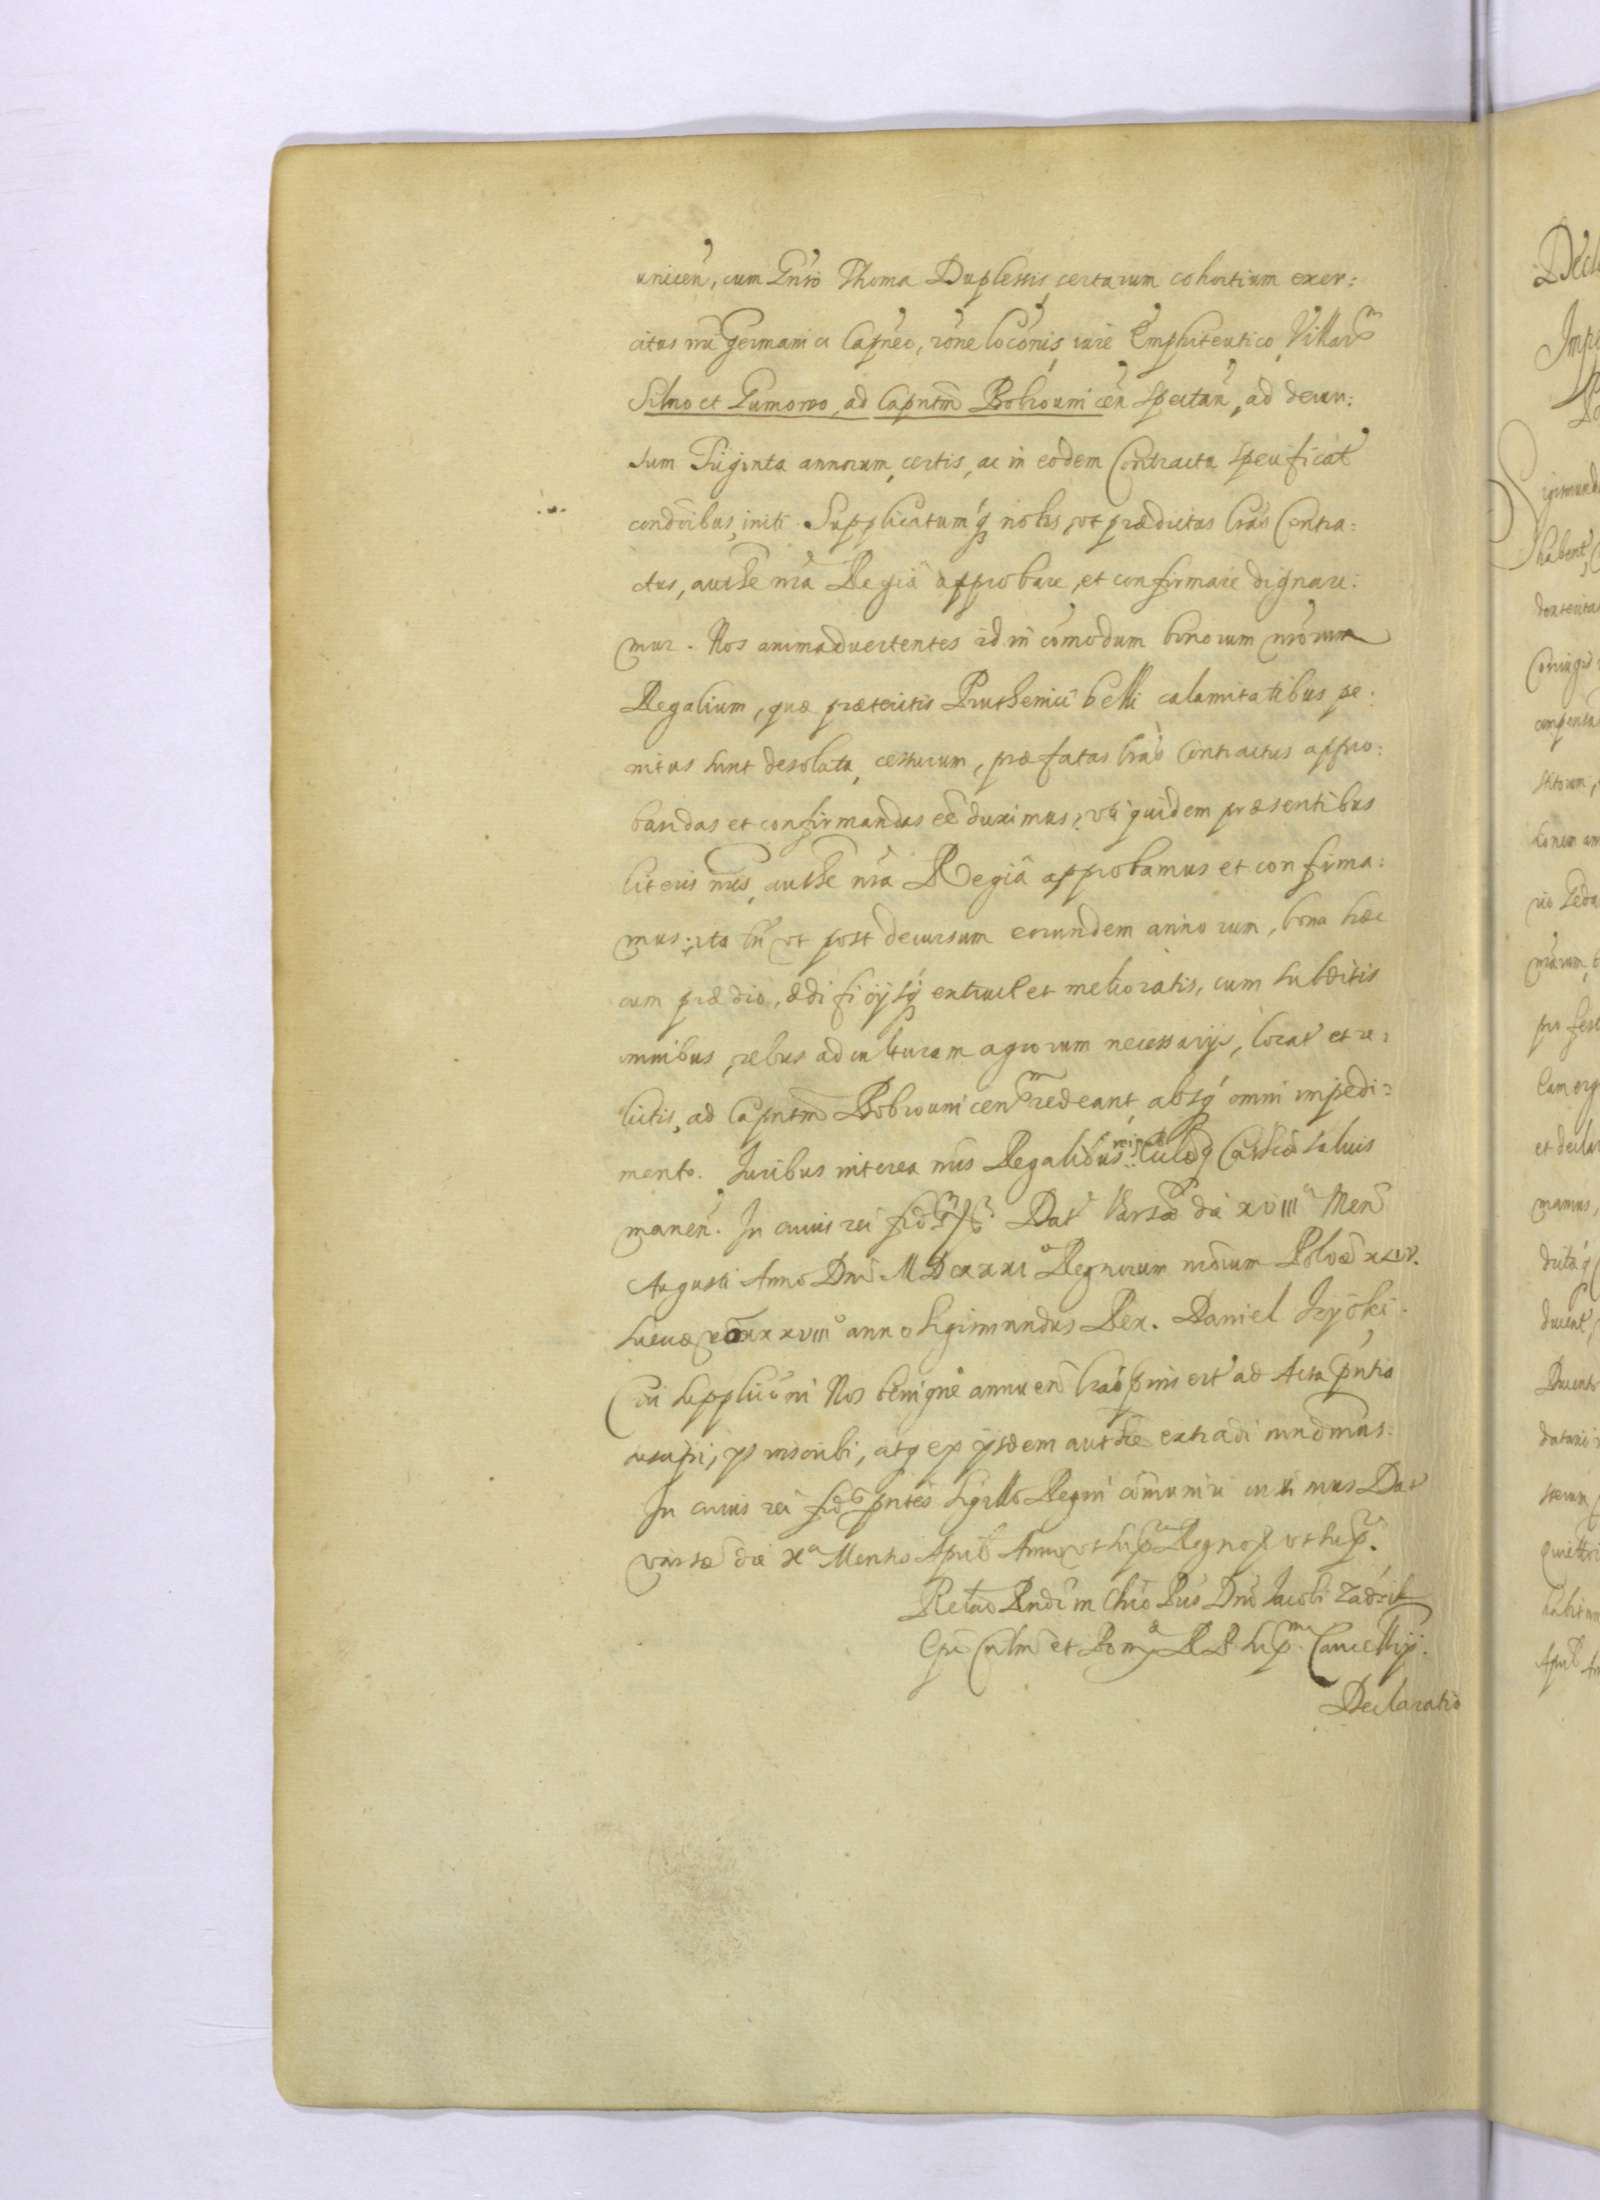 unicen, cum Gnso Thoma Duplessis, certarum cohortium exer:
citus nri Germanici Capneo, rone loconis iure Emphiteutico, Villarum
Silno et Gumowo, ad Capntm Bobrouni cen spectan, ad decur:
sum Triginta annorum, certis, ac in eodem Contractu specificat
condnibus, initi. Supplicatumq nobis, vt prædictas lras Contra=
ctus, authe nra Regiâ approbare, et confirmare dignare:
mur. Nos animaduertentes id in comodum bonorum nrorum
Regalium, quæ præteritis Pruthenici belli calamitatibus pe:
nitus sunt desolata, cessurum, præfatas lras Contractus appro:
bandas et confirmandas ee duximus, vti quidem præsentibus
literis nris, authe nra Regiâ approbamus et confirma:
mus: ita tn vt post decursum eorundem annorum, bona hæc
cum prædio, ædificijsq extruct et melioratis, cum subditis
omnibus, rebus ad culturam agrorum necessarijs, locat et re:
lictis, ad Capntm Bobrouni cen redeant, absq omni impedi=
mento. Juribus interea nris Regalibus Reipub: Ecclæq Catholcæ saluis
manen. In cuius rei fid Dat Varsæ die XVIII Men
Augusti Anno Dni MDCXXXI Regnorum nrorum Polon XLIV.
Sueciæ vero XXXVIII anno Sigismundus Rex. Daniel
Cui supplicōni Nos benigne annuen lras pins ert ad Acta pntia
suscipi, ijs inscribi, atq ex ijsdem authce extradi mndmus.
In cuius rei fid pntes sigillo Regni comuniri iussimus Dat
Varsæ die Xa Mensis April Anno vt sup Regnor vt sup.
Relatio Rndi in Chro Pris Dni Jacobi Zadzik
Epi Culm et Pom R P Supmi Cancellrij.
Declaratio